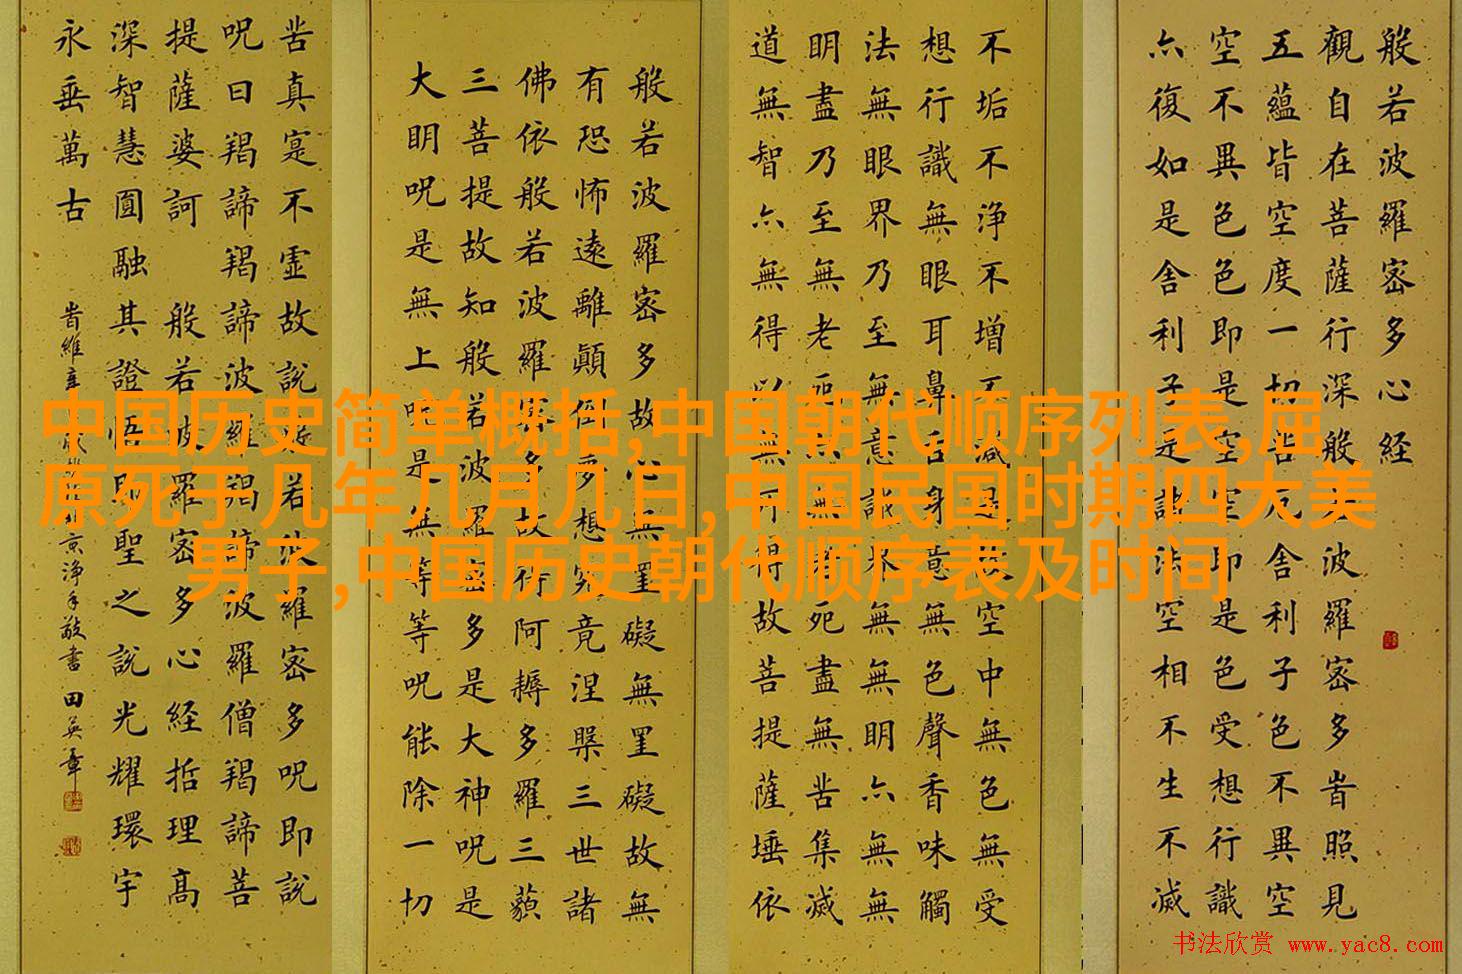 中国历史简单概括,中国朝代顺序列表,屈
原死于几年几月几日,中国民国时期四大美
男子,中国历史朝代顺序表及时间
般若波羅密多心経
觀自在菩薩行深般波羅密多峕照見
五蘊皆空度一切苦厄舍利子色不異空
空不異色色即是空空即是色受想行識
亦復如是舍利子是諸法空相不生不滅
不垢不浄不增不減是故空中無色無受
想行識無眼耳鼻舌身意無色聲香味觸
法無眼界乃至無意識界無無明亦無無
明盡乃至無老死亦無老死盡無苦集滅
道無智亦無得以無所得故菩提薩埵依
般若波羅密多故心無罣礙無罣礙故無
有恐怖遠離顛倒夢想究竟涅槃三世諸
佛依般若波羅密多故得阿耨多羅三藐
三菩提故知般若波羅密多是大神呪是
大明呪是無上呪是無等等呪能除一切
苦真寔不虛故說般若波羅密多呪即說
呪曰羯諦羯諦波羅羯諦波羅僧羯諦菩
提薩婆訶 般若波羅密多心経括理高
深智慧圓融其證悟即聖之說光耀環宇
永垂萬古
峕維京浄手敬書田英章
书法欣赏 www.yac8.com